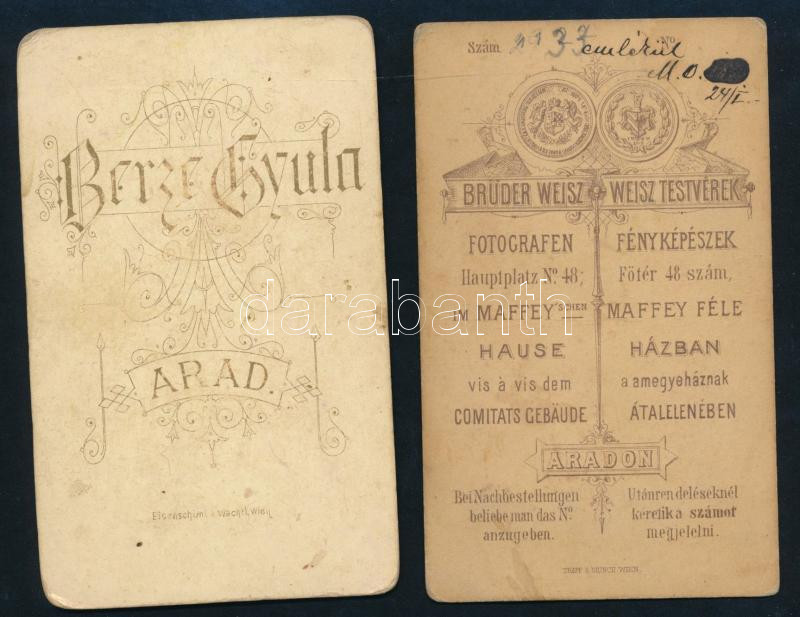 Berze Gyula
ARAD.
Eisenschiml & Wachtl, Wien
Szám 33 No
emlékül
M. O.
24/I.
BRÜDER WEISZ
FOTOGRAFEN
Hauptplatz No. 48,
IM MAFFEY'SCHEN
HAUSE
vis à vis dem
COMITATS GEBÄUDE
WEISZ TESTVÉREK
FÉNYKÉPÉSZEK
Fötér 48 szám,
MAFFEY FÉLE
HÁZBAN
a amegyeháznak
ÁTALELENÉBEN
ARADON
Bei Nachbestellungen
beliebe man das No.
anzugeben.
Utánrendeléseknél
kerelik a számot
megjelelni.
TRAPP & MÜNCH WIEN.
darabanth